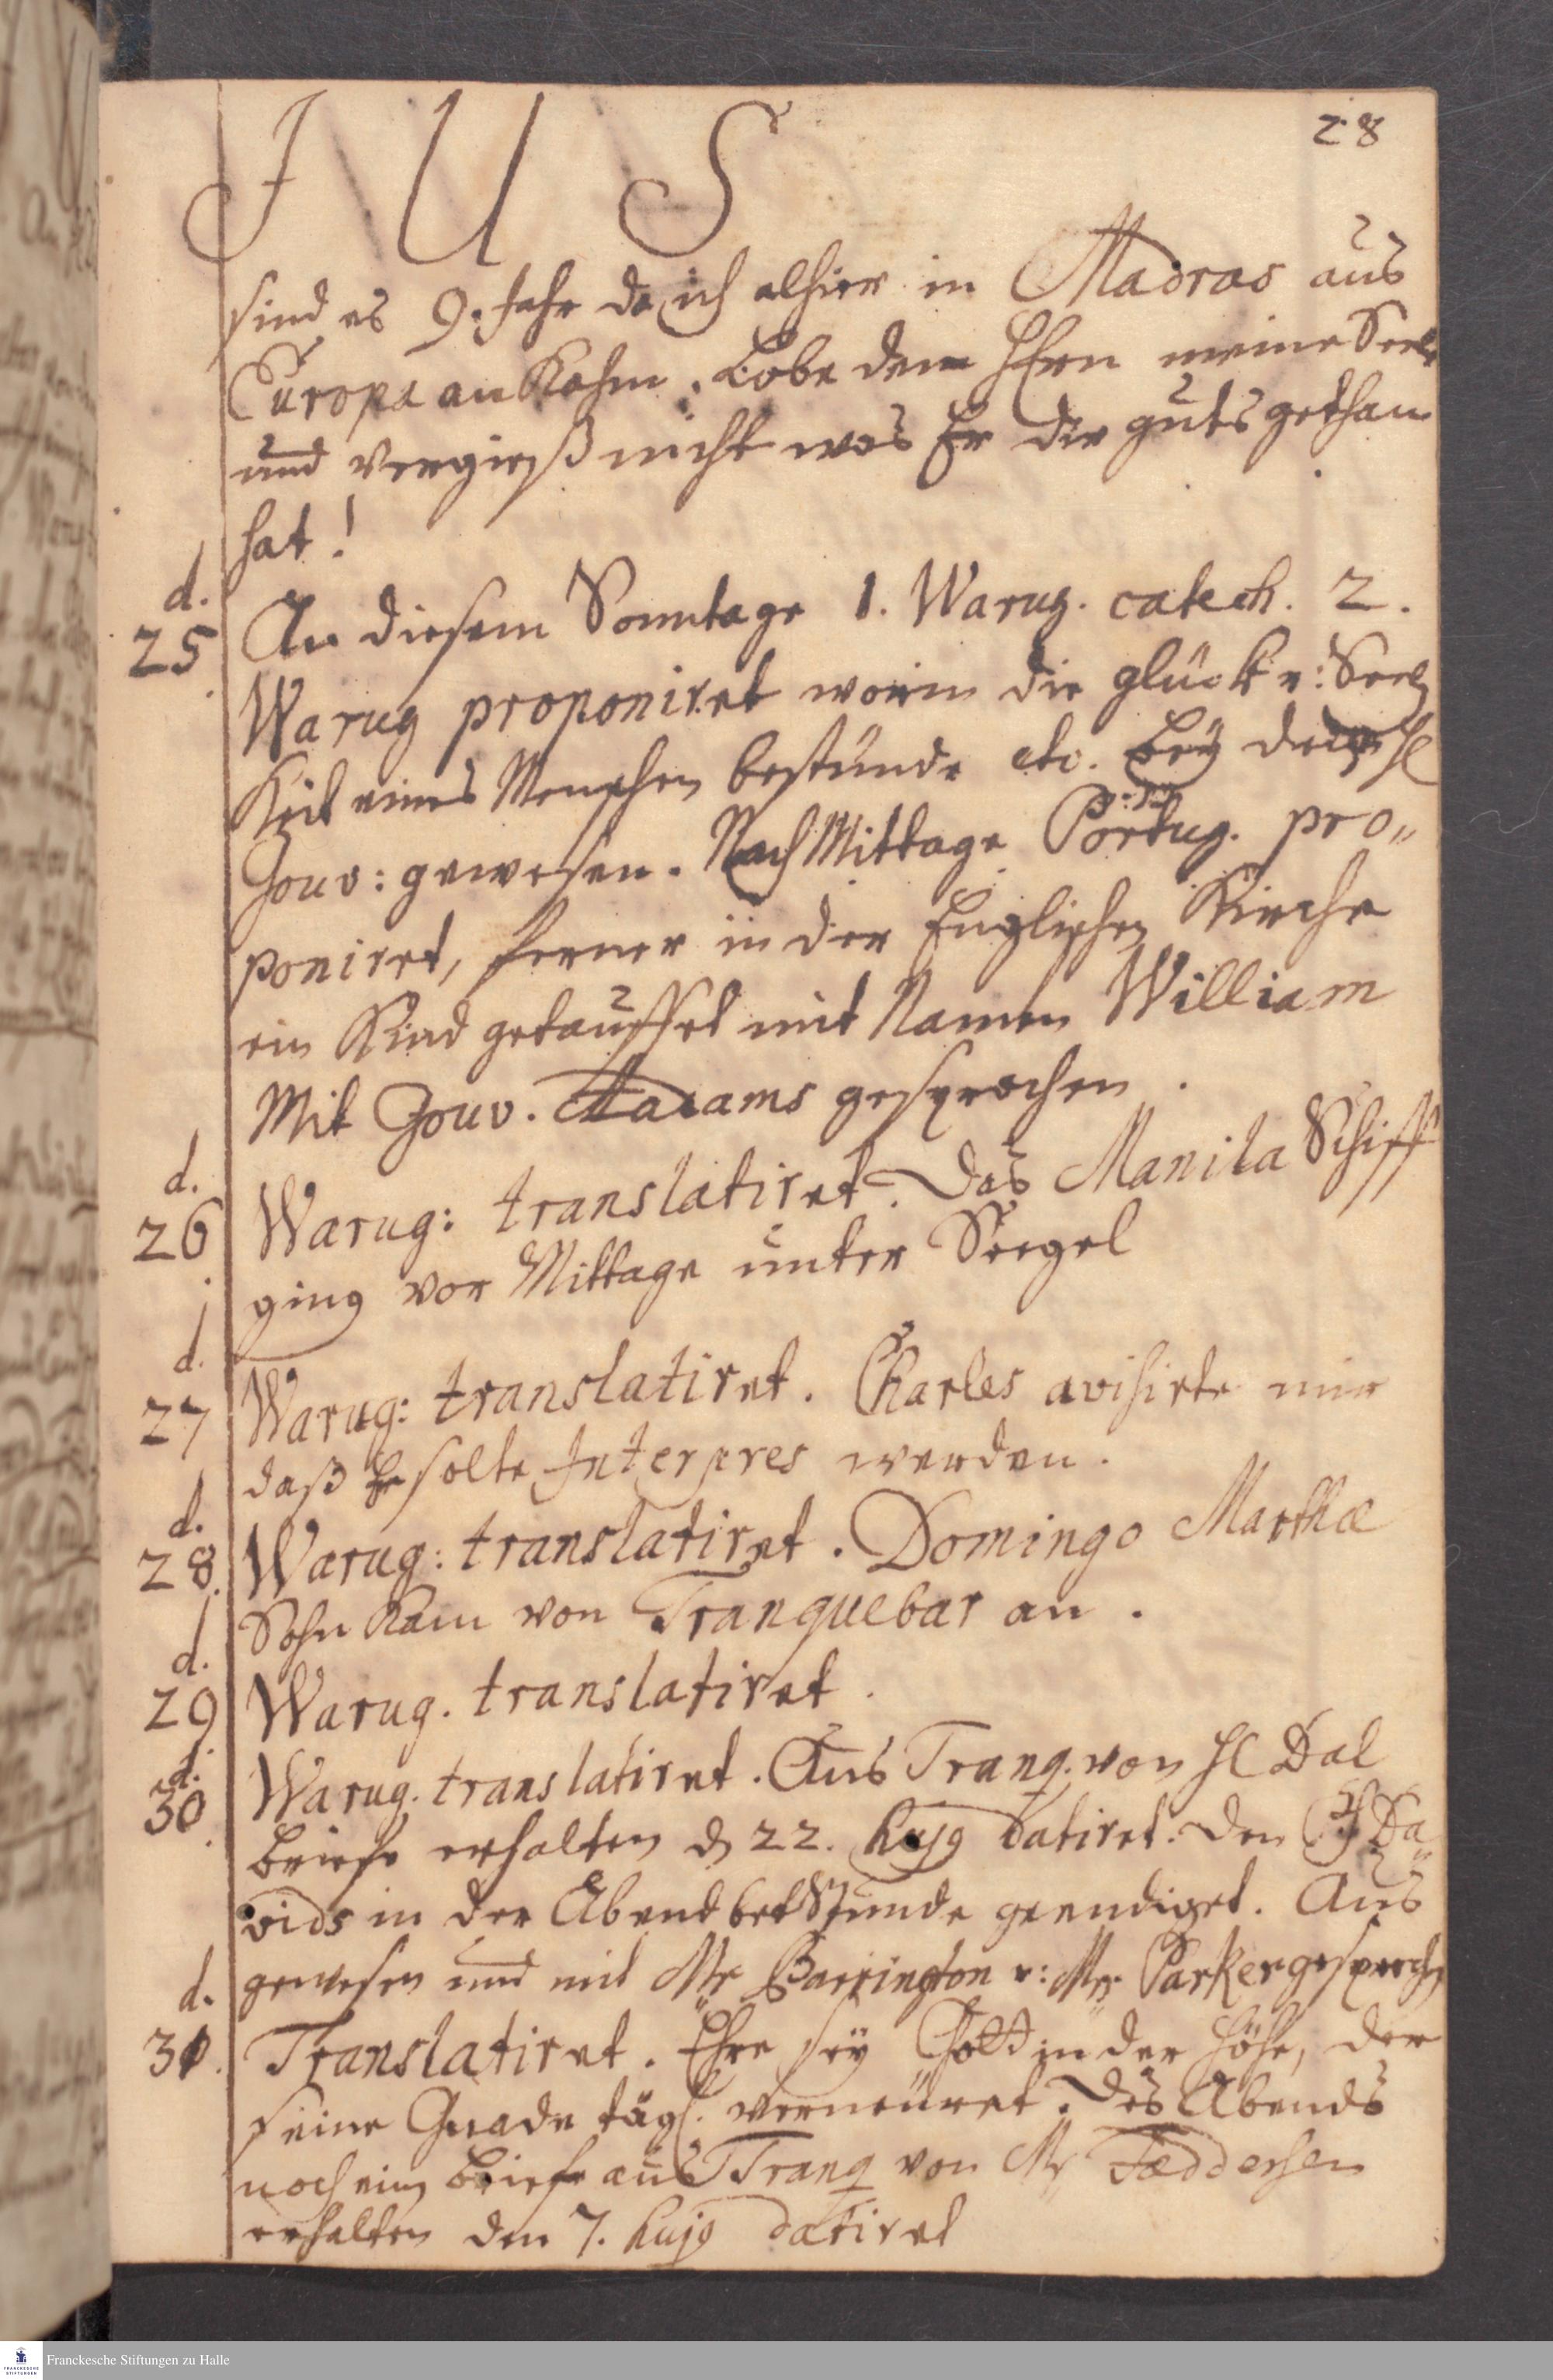 28
I U S
sind es 9. Jahr da ich alhier in Madras aus
Europa an Kahm. Lobe den HErn meine Seele
und vergieß nicht was Er dir guts gethan
hat!
d.
25 An diesem Sonntage 1. Warug. catech. 2.
Warug proponiret worin die glück u: Seelig
Keit eines Menschen bestünde etc. Bey dem H
Gouv: gewesen. Nach Mittage Portug. pro„
poniret, ferner in der Englischen Kirche
ein Kind getauffet mit Namen William
Mit Gouv. gesprochen.
d.
26 Warug: translatiret. Das Manila Schiff
ging vor Mittage unter Seegel
d.
27 Warug: translatiret. Charles avisirte mir
daß Er solte Interpres werden.
d.
28. Warug: translatiret. Domingo Marthæ
Sohn Kam von Tranquebar an.
d.
29 Warug. translatiret.
d.
30. Warug. translatiret. Aus Tranq. von H Dal
Briefe erhalten d 22. hujg datiret. Den Ps Da„
vids in der Abend bet Stunde geendiget. Aus
gewesen und mit Mr Barrington u: Mr. Parker gesprochen
d.
31. Translatiret. Ehre sey Gott in der Höhe, der
seine Gnade tägl. verneuret. Des Abends
noch ein Briefe aus Tranq von Mr Feddersen
erhalten den 7. hujg datiret
Franckesche Stiftungen zu Halle
FRANCKESCHE
STIFTUNGEN